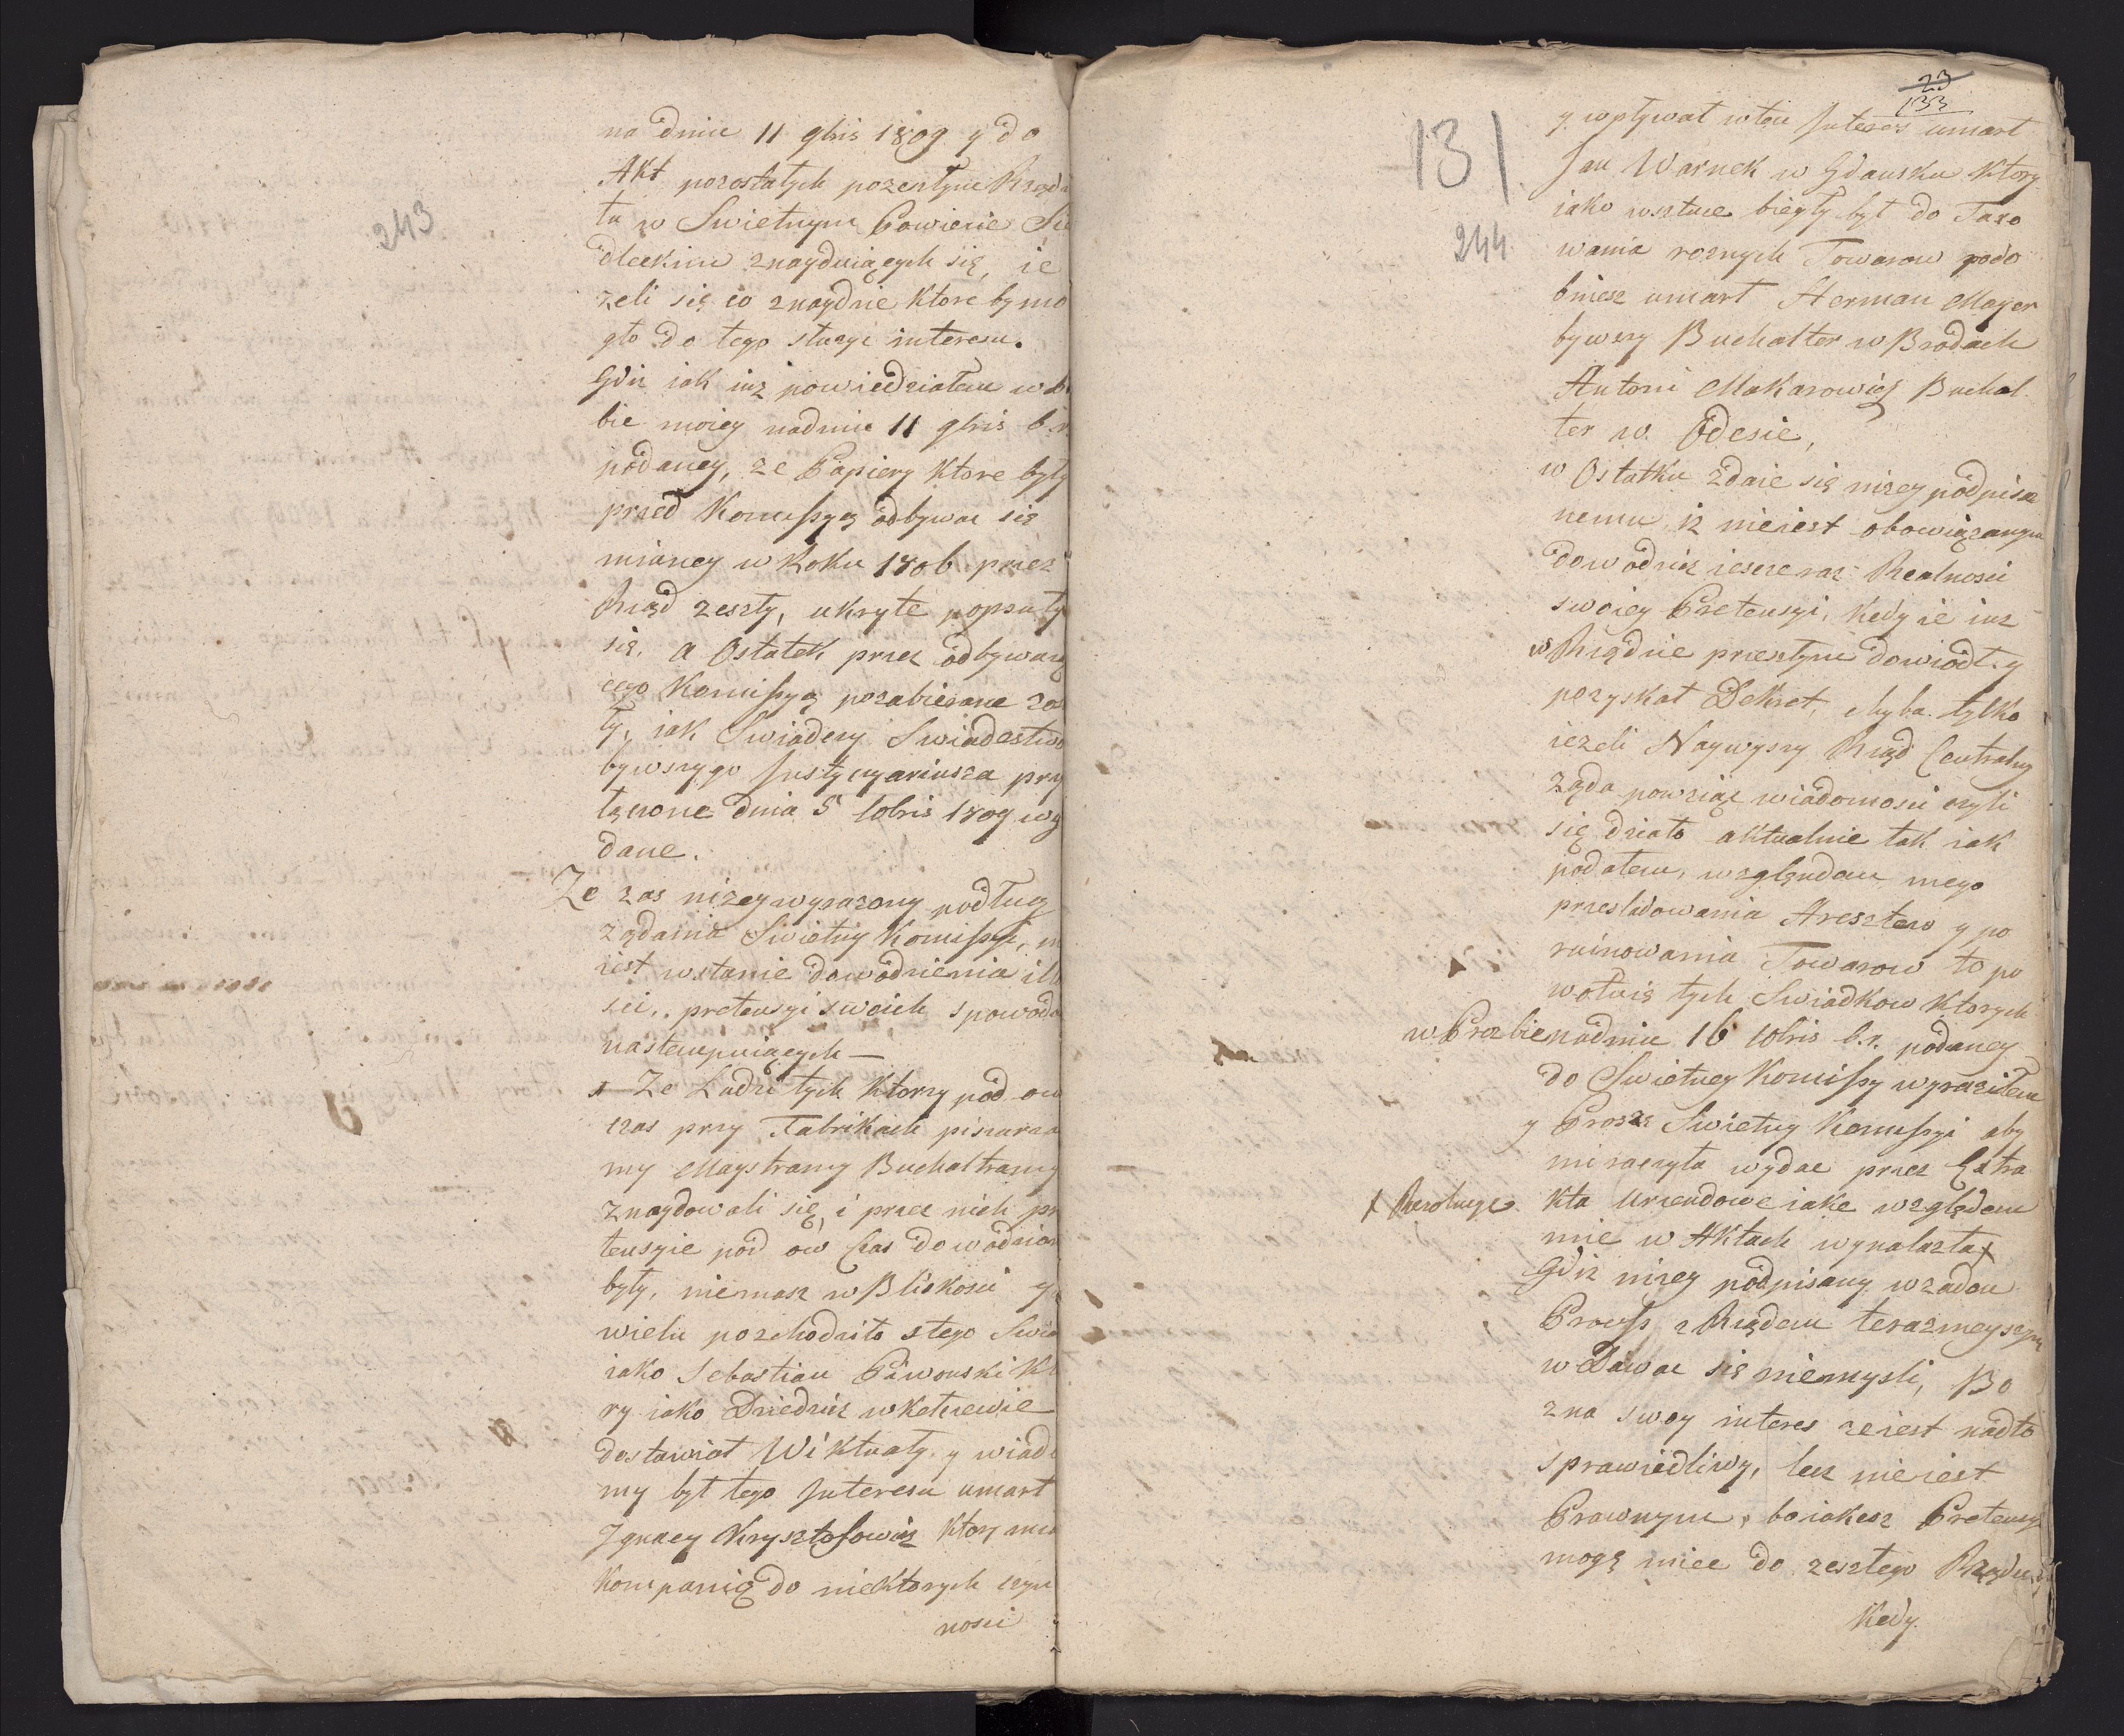 243
na dniu 11 9bris 1809 y do
Akt pozostałych pozeszłym Rządzi
tu w Swietnym Powiecie Sie
dleckim znayduiących się, ie
zeli się co znaydzie ktore by mo
gło do tego służyc interesu.
Gdiz iak iuz powiedziałem w 
bie moiey nadniu 11 9bris b.r.
podaney, ze Papiery ktore były
przed Komissyą odbywac się
mianey w Roku 1806 przez
Rząd zeszły, ukryte popsuły
się, a Ostatek przez odbywaią
cego Komissyą pozabierane zos
ły, iak Swiadczy Swiadestwo
bywszygo Justycyariusza przy
łączone dnia 5 10bris 1809 wy
dane.
Ze zas nizey wyrazony podług
ządania Swietny Komissyi, ni
iest wstanie dowodzienia ill
sci.. pretensyi swoich spowodo
nastempuiących —
1 Ze Ludzi tych ktorzy pod ow
czas przy Fabrikach pisarza
my Maystramy Buchaltramy
znaydowali się, i przez nich pr
tensyie pod ow Czas dowodzion
były, niemasz w Bliskosci y
wielu pozchodziło stego Swia
iako Sebastian Piwonski kt
ry iako Dziedzic w Ketrzewie
dostawiał Wiktuały y wiado
my był tego Interesu umarł
Ignacy Krysztofowicz ktory mia
kompanią do niektorych czyn
nosci
23
133
131
244
y wpływał wten Interes umarł
Jan Warnek w Gdansku ktory
iako wsztuce biegły był do Taxo
wania roznych Towarow podo
bniesz umarł Herman Mayer
bywszy Buchalter w Brodach
Antoni Makarowicz Buchal
ter w Odesie,
w Ostatku zdaie się nizey podpisa
nemu, iz nieiest obowiązanym
dowodzic ieszcze raz Realnosci
swoiey Pretensyi, kedy ie iuz
w Rządzie przeszłym dowiodł y
pozyskał Dekret, chyba tylko
iezeli Naywyszy Rząd Centralny
ząda powziąć wiadomosci czyli
się działo aktualnie tak iak
podałem, względem mego
przesladowania Aresztow y po
ruinowania Towarow to po
wołuię tych Swiadkow ktorych
w Prozbie nadniu 16 10bris b.r. podaney
do Swietney Komissy wyraziłem
y Proszę Swietny Komissyi aby
mi raczyła wydac przez Extra
kta Urzendowe iake względem
mie w Aktach wynalazła x
x Rezolucye
Gdiz nizey podpisany wzaden
Process z Rządem terazneyszym
w Dawac się niemysli, Bo
zna swoy interes zeiest nadto
sprawiedliwy, lecz nieiest
Prawnym, bo iakesz Pretensye
mogę miec do zeszłego Rządu,
kedy